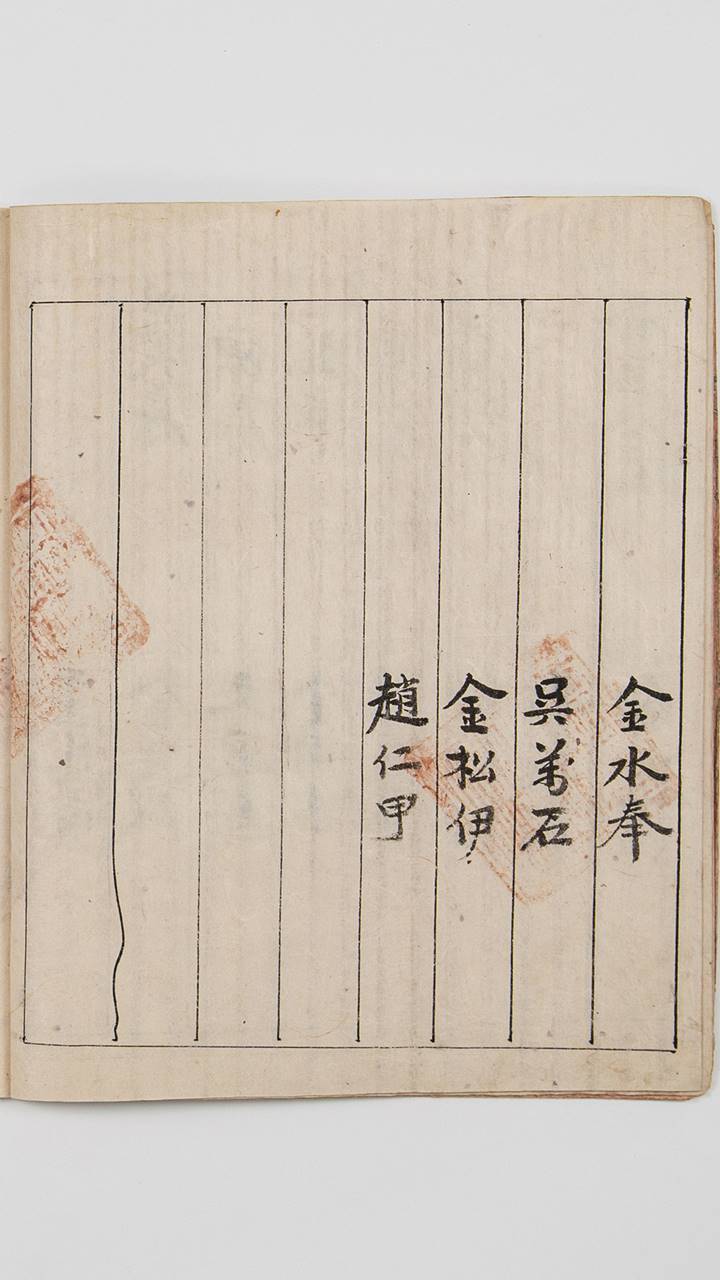 金水奉
吳萬石
金松伊
趙仁甲